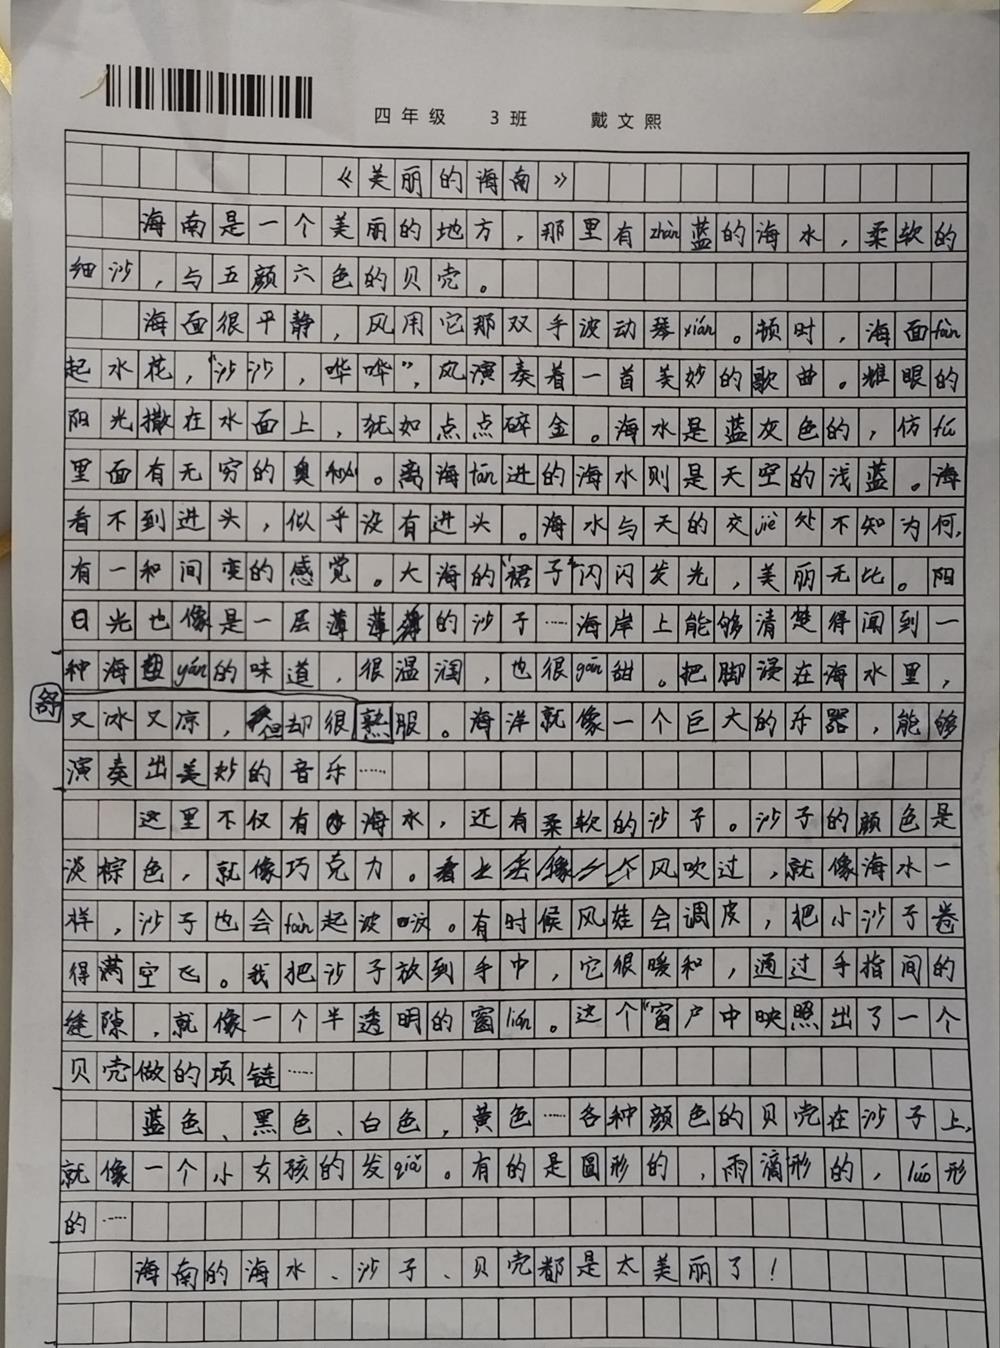 四年级 3班 戴文熙
《美丽的海南》
海南是一个美丽的地方，那里有zhàn蓝的海水，柔软的
细沙，与五颜六色的贝壳。
海面很平静，风用它那双手波动琴xián。顿时，海面fàn
起水花，“沙沙，哗哗”，风演奏着一首美妙的歌曲。耀眼的
阳光撒在水面上，犹如点点碎金。海水是蓝灰色的，仿fú
里面有无穷的奥秘。离海tān进的海水则是天空的浅蓝。海
看不到进头，似乎没有进头。海水与天的交jiè处不知为何，
有一和间变的感觉。大海的“裙子”闪闪发光，美丽无比。阳
日光也像是一层薄薄薄的沙子……海岸上能够清楚得闻到一
种海yán的味道，很温润，也很gān甜。把脚浸在海水里，
舒
又冰又凉，但却很熟服。海洋就像一个巨大的乐器，能够
演奏出美妙的音乐……
这里不仅有海水，还有柔软的沙子。沙子的颜色是
淡棕色，就像巧克力。风吹过，就像海水一
样，沙子也会fàn起波浪。有时候风娃会调皮，把小沙子卷
得满空飞。我把沙子放到手中，它很暖和，通过手指间的
缝隙，就像一个半透明的窗lián。这个“窗户中映照出了一个
贝壳做的项链……
蓝色、黑色、白色，黄色……各种颜色的贝壳在沙子上，
就像一个小女孩的发qiǎ。有的是圆形的，雨滴形的，luó形
的……
海南的海水、沙子、贝壳都是太美丽了！